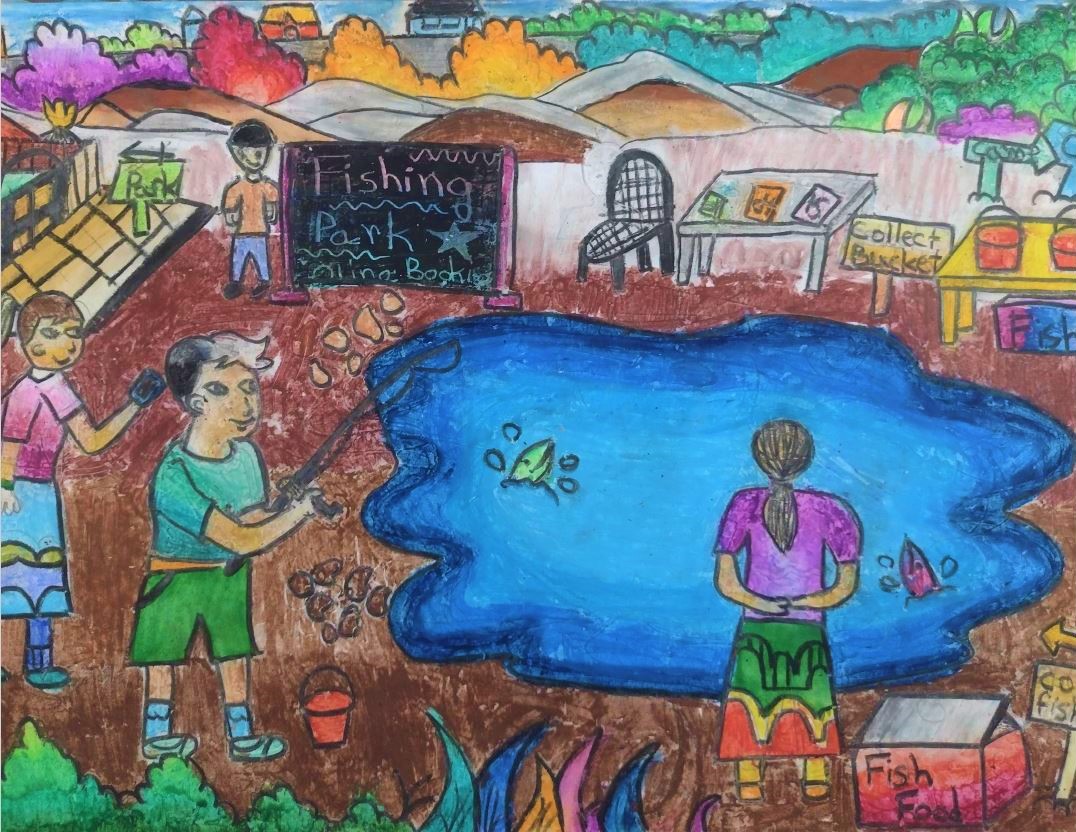 Park
Fishing
Park
Online Booking
Collect
Bucket
Fish
Fish
Food